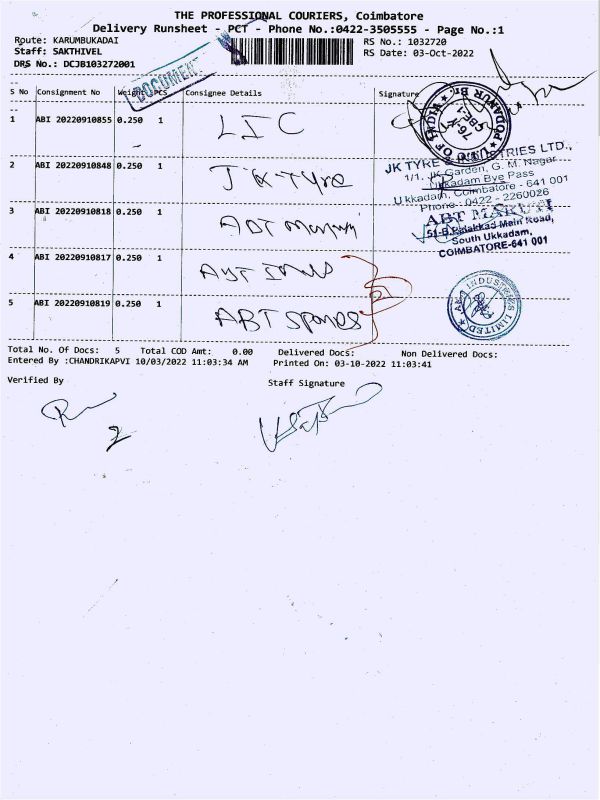 THE PROFESSIONAL COURIERS, Coimbatore
Delivery Runsheet - PCT - Phone No.:0422-3505555 - Page No.:1
Route: KARUMBUKADAI RS No.: 1032720
Staff: SAKTHIVEL RS Date: 03-Oct-2022
DRS No.: DCJB103272001
DOCUMENT
S No Consignment No Weight PCS Consignee Details Signature
1 ABI 20220910855 0.250 1 LIC
2 ABI 20220910848 0.250 1 JK Tyre
JK TYRE & INDUSTRIES LTD.,
1/1, JK Garden, G. M. Nagar
Ukkadam Bye Pass
Ukkadam, Coimbatore - 641 001
Phone : 0422 - 2260026
3 ABI 20220910818 0.250 1 ABT Maruti
ABT MARUTI
51-B, Palakkad Main Road,
South Ukkadam,
COIMBATORE-641 001
4 ABI 20220910817 0.250 1
5 ABI 20220910819 0.250 1 ABT Spares
INDUSTRIES LIMITED
Total No. Of Docs: 5 Total COD Amt: 0.00 Delivered Docs: Non Delivered Docs:
Entered By :CHANDRIKAPVI 10/03/2022 11:03:34 AM Printed On: 03-10-2022 11:03:41
Verified By Staff Signature